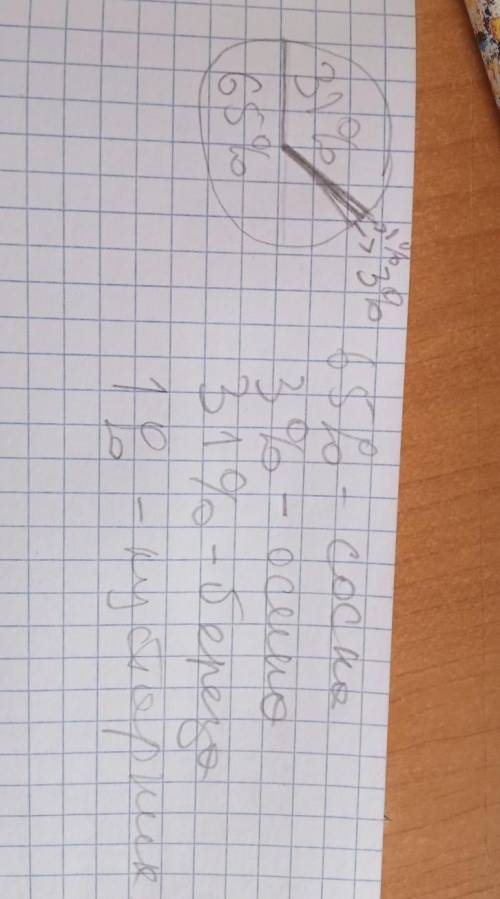 31%
65%
1%
3%
65% - сосна
3% - осина
31% - береза
1% -